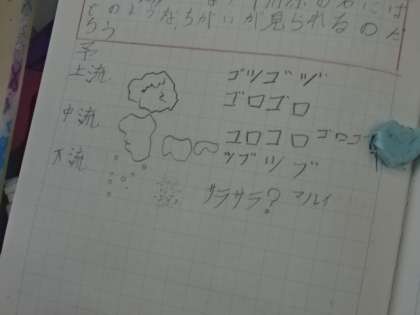 このようなちがいが見られるのだ
ろう
予
上流 ゴツゴツ
ゴロゴロ
中流 コロコロ ゴロゴロ
ツブツブ
下流
サラサラ? マルイ